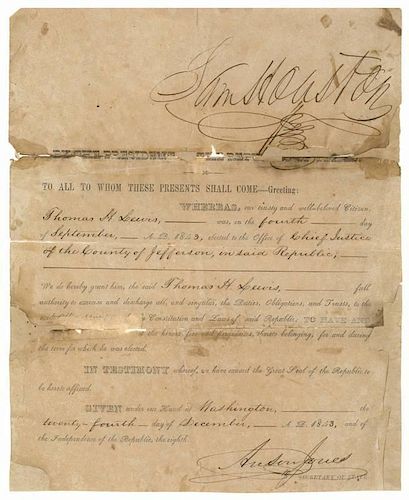 Sam Houston
TO ALL TO WHOM THESE PRESENTS SHALL COME—Greeting:
WHEREAS, our trusty and well-beloved Citizen,
Thomas H. Lewis, was, on the fourth day
of September, A.D. 1843, elected to the Office of Chief Justice
of the County of Jefferson, in said Republic;
We do hereby grant him, the said Thomas H. Lewis, full
authority to exercise and discharge all, and singular, the Duties, Obligations, and Trusts, to the
Constitution and Laws of said Republic, TO HAVE AND
the honors, fees and perquisites, thereto belonging, for and during
the term for which he was elected.
IN TESTIMONY whereof, we have caused the Great Seal of the Republic to
be hereto affixed.
GIVEN under our Hand at Washington, the
twenty-fourth day of December, A.D. 1843, and of
the Independence of the Republic, the eighth.
Anson Jones
SECRETARY OF STATE